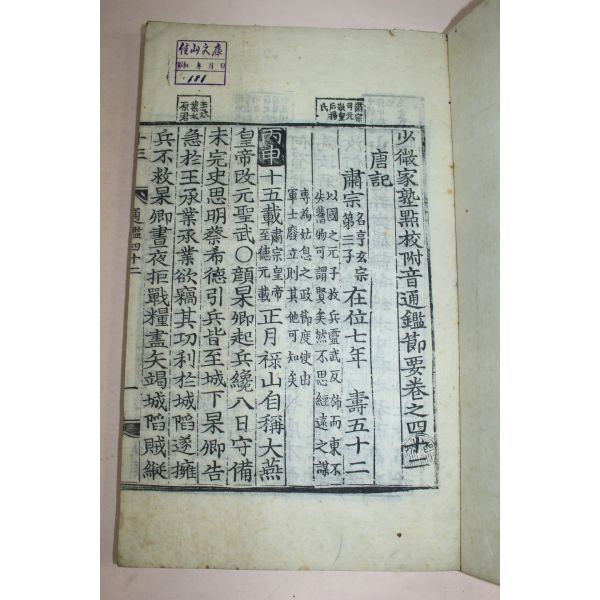 佳山文庫
年 月 日
181
少微家塾點校附音通鑑節要卷之四十二
唐記
肅宗 名亨玄宗第三子 在位七年 壽五十二
以國之元子敎兵靈武反旆而東不
失舊物可謂賢矣然不思經遠之謀
專為姑息之政節度使由
軍士廢立則其他可知矣
丙申 十五載 肅宗皇帝至德元載 正月祿山自稱大燕
皇帝改元聖武〇顔杲卿起兵纔八日守備
未完史思明蔡希德引兵皆至城下杲卿告
急於王承業承業欲竊其功利於城陷遂擁
兵不救杲卿晝夜拒戰糧盡矢竭城陷賊縱
通鑑四十二